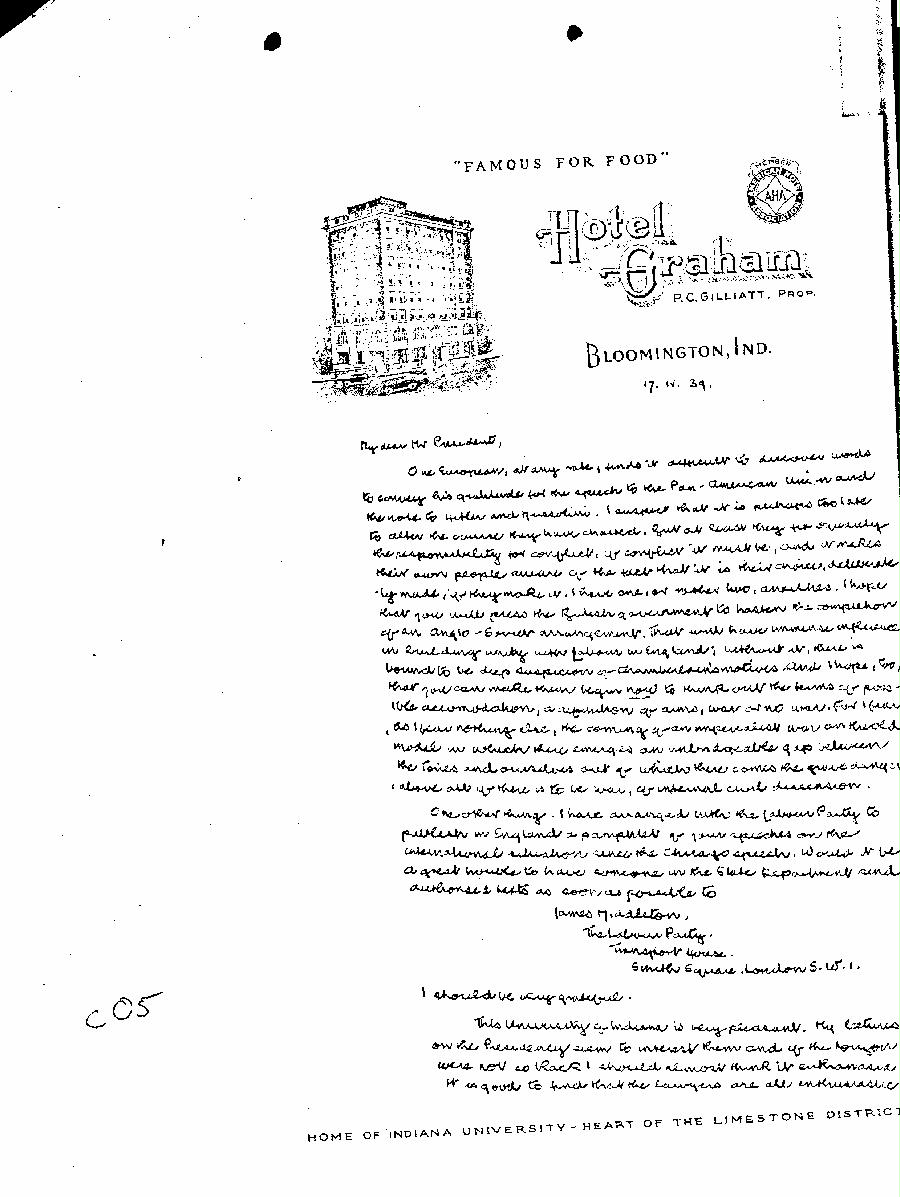 "FAMOUS FOR FOOD"
MEMBER
AMERICAN HOTEL ASSOCIATION
AHA
Hotel
Graham
P.C. GILLIATT, PROP.
BLOOMINGTON, IND.
17. IV. 39.
My dear Mr President,
One European, at any rate, finds it difficult to discover words
to convey his gratitude for the speech to the Pan-American Union and
the note to Hitler and Mussolini. I suspect that it is perhaps too late
to alter the course they have chosen. But at least they fix squarely
the responsibility for conflict, if conflict it must be, and it makes
their own people aware of the fact that it is their choice, deliberate
-ly made, if they make it. I have one, or rather two, anxieties. I hope
that you will press the British government to hasten the completion
of an Anglo-Soviet arrangement. That will have immense influence
in building unity with labour in England; without it, there is
bound to be deep suspicion of Chamberlain's motives. And I hope, too,
that you can make them begin now to think out the terms of poss-
ible accomodation, a definition of aims, war or no war. For I fear
, as I fear nothing else, the coming of an imperialist war on the old
model in which there emerges an unbridgeable gap between
the Tories and ourselves out of which there comes the grave danger
, above all if there is to be war, of internal civil dissension.
One other thing. I have arranged with the Labour Party to
publish in England a pamphlet of your speeches on the
international situation since the Chicago speech. Would it be
a great trouble to have someone in the State Department send
authorised texts as soon as possible to
James Middleton,
The Labour Party.
Transport House.
Smith Square. London S.W.1.
I should be very grateful.
This University of Indiana is very pleasant. My lectures
on the Presidency seem to interest them and if the
were not so black I should almost think it
It is good to find that the lawyers are all enthusiastic
C05
HOME OF INDIANA UNIVERSITY - HEART OF THE LIMESTONE DISTRICT